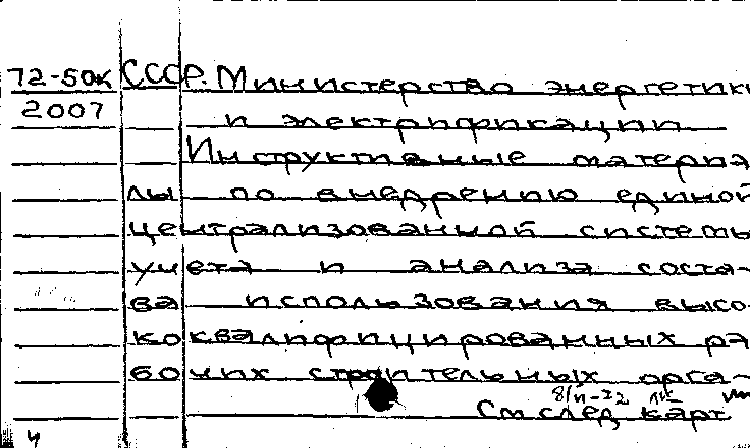 72-50к СССР. Министерство энергетики
2007 и электрификации.
Инструктивные материа
лы по внедрению единой
централизованной системы
учета и анализа соста-
ва использования высо
коквалифицированных ра
бочих строительных орга-
8/II-72
См след карт
4